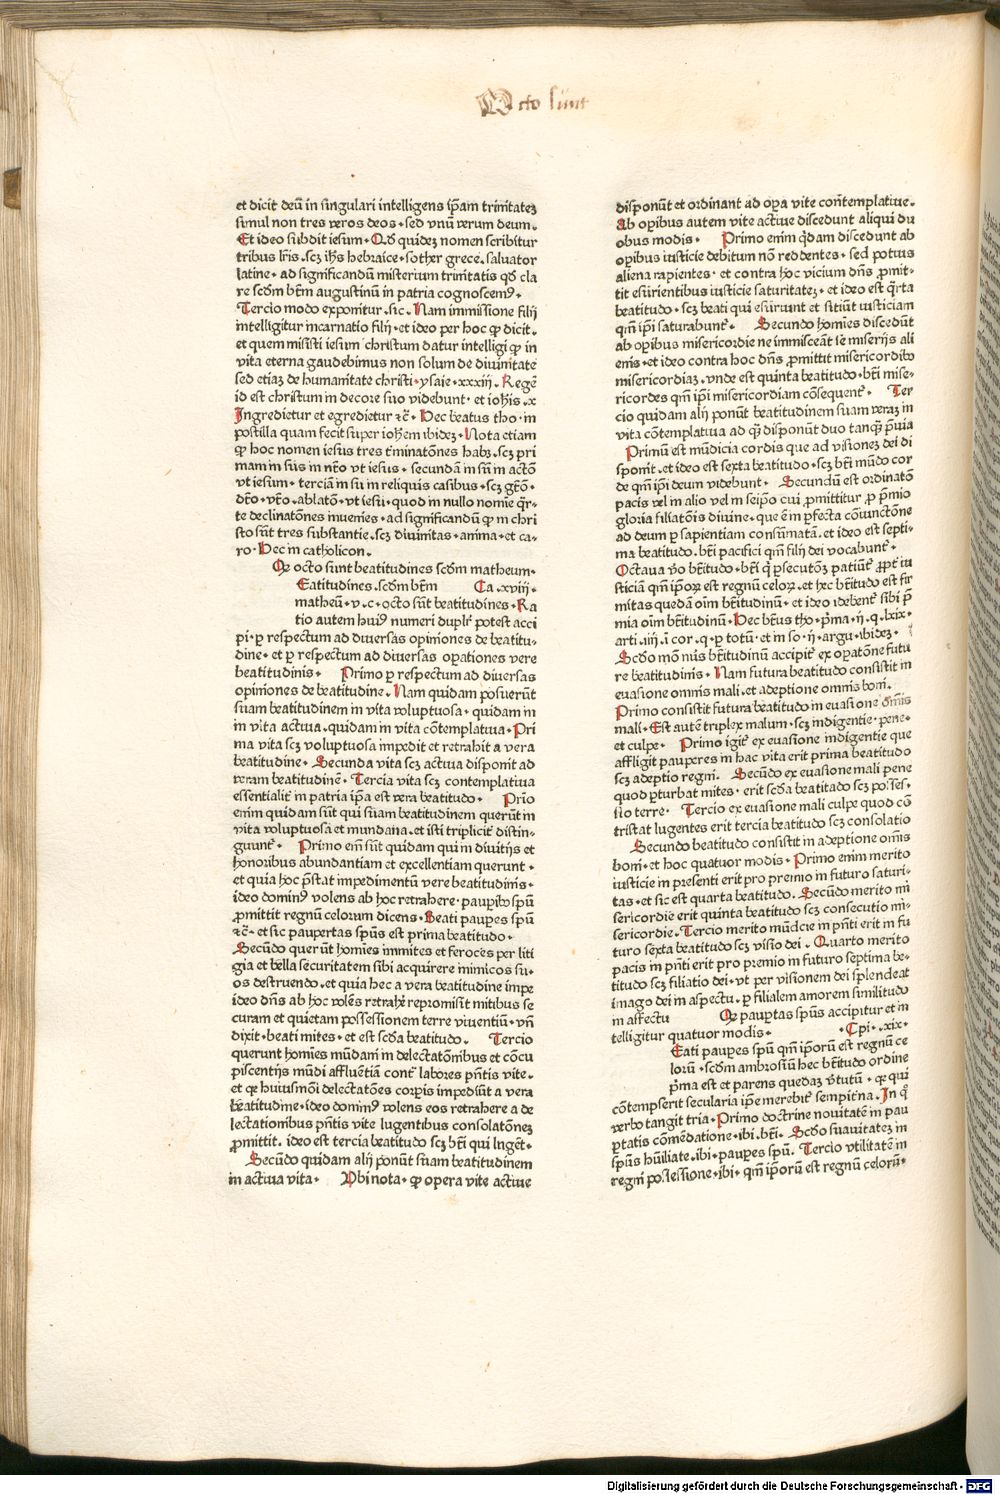 Octo sunt
et dicit deū in singulari intelligens ip̄am trinitateꝫ
simul non tres veros deos · sed vnū verum deum.
Et ideo subdit iesum · Qd̄ quideꝫ nomen scribitur
tribus lr̄is · scꝫ ih̄s hebraice · sother grece · saluator
latine · ad significandū misterium trinitatis qd̄ cla
re scd̄m btm̄ augustinū in patria cognoscemꝰ ·
Tercio modo exponitur .sic. Nam immissione filij
intelligitur incarnatio filij · et ideo per hoc ꝙ dicit.
et quem misisti iesum christum datur intelligi ꝙ in
vita eterna gaudebimus non solum de diuinitate
sed etiaꝫ de humanitate christi · ysaie · xxxiij . Regē
id est christum in decore suo videbunt · et ioh̄is .x
Ingredietur et egredietur ⁊c̄ · Hec beatus tho · in
postilla quam fecit super ioh̄em ibideꝫ · Nota etiam
ꝙ hoc nomen iesus tres t̄minatōnes habꝫ .scꝫ pri
mam in sus in nt̄o vt iesus · secundā in sm̄ in actō
vt iesum · terciā in su in reliquis casibus · scꝫ gt̄o ·
dt̄o · vt̄o · ablatō · vt iesu · quod in nullo nomie qr̄
te declinatōnes inuenies · ad significandū ꝙ in chri
sto sūt tres substantie .scꝫ diuinitas · anima · et ca-
ro · Hec in catholicon .
Qꝫ octo sunt beatitudines scd̄m matheum ·
Eatitudines .scd̄m btm̄ Ca .xviij ·
matheū · v · c · octo sūt beatitudines · Ra
tio autem huiꝰ numeri duplr̄ potest acci
pi · ꝑ respectum ad diuersas opiniones de beatitu-
dine · et ꝑ respectum ad diuersas oꝑationes vere
beatitudinis · Primo ꝑ respectum ad diuersas
opiniones de beatitudine . Nam quidam posuerūt
suam beatitudinem in vita voluptuosa · quidam in
in vita actiua .quidam in vita cōtemplatiua · Pri
ma vita scꝫ voluptuosa impedit et retrahit a vera
beatitudine · Secunda vita scꝫ actiua disponit ad
veram beatitudinē · Tercia vita scꝫ contemplatiua
essentialit̄ in patria ip̄a est vera beatitudo · Prīo
enim quidam sūt qui suam beatitudinem querūt in
vita voluptuosa et mundana .et isti triplicit̄ distin-
guunt̄ · Primo em̄ sūt quidam qui in diuitijs et
honoribus abundantiam et excellentiam querunt ·
et quia hoc p̄stat impedimentū vere beatitudinis ·
ideo dominꝰ volens ab hoc retrahere · pauꝑibꝰ spū
ꝓmittit regnū celorum dicens · Beati pauꝑes spū
⁊c̄ · et sic pauꝑtas spūs est prima beatitudo ·
Secūdo querūt homīes immites et feroces per liti
gia et bella securitatem sibi acquirere inimicos su-
os destruendo .et quia hec a vera beatitudine impe
ideo dn̄s ab hoc volēs retrahe repromisit mitibus se
curam et quietam possessionem terre viuentiū · vn̄
dixit · beati mites · et est scd̄a beatitudo . Tercio
querunt homīes mūdani in delectatōnibus et cōcu
piscentijs mūdi affluentiā cont̄ labores pn̄tis vite ·
et qꝫ huiusmōi delectatōes corꝑis impediūt a vera
beatitudine · ideo dominꝰ volens eos retrahere a de
lectationibus pn̄tis vite lugentibus consolatōneꝫ
ꝓmittit . ideo est tercia beatitudo scꝫ bt̄i qui lugēt ·
Secūdo quidam alij ponūt suam beatitudinem
in actiua vita · Vbi nota · ꝙ opera vite actiue
disponūt et ordinant ad oꝑa vite contemplatiue .
Ab oꝑibus autem vite actiue discedunt aliqui du
obus modis · Primo enim qdam discedunt ab
oꝑibus iusticie debitum nō reddentes · sed potius
aliena rapientes · et contra hoc vicium dn̄s ꝓmit-
tit esurientibus iusticie saturitateꝫ · et ideo est qrta
beatitudo · scꝫ beati qui esuriunt et sitiūt iusticiam
qm̄ ip̄i saturabunt̄ · Secundo homīes discedūt
ab oꝑibus misericordie ne immisceāt se miserijs ali
enis · et ideo contra hoc dn̄s ꝓmittit misericordibꝰ
misericordiaꝫ . vnde est quinta beatitudo · bt̄i mise-
ricordes qm̄ ip̄i misericordiam cōsequent̄ · Ter
cio quidam alij ponūt beatitudinem suam veraꝫ in
vita cōtemplatiua ad quā disponūt duo tanqꝫ p̄uia
Primū est mūdicia cordis que ad visioneꝫ dei di
sponit .et ideo est sexta beatitudo · scꝫ bt̄i mūdo cor
de qm̄ ip̄i deum videbunt · Secundū est ordinatō
pacis vel in alio vel in seip̄o cui ꝓmittitur ꝓ p̄mio
gloria filiatōis diuine · que ē in ꝑfecta cōiunctōne
ad deum ꝑ sapientiam consūmatā. et ideo est septi-
ma beatitudo. bt̄i pacifici qm̄ filij dei vocabunt̄ ·
Octaua vō bt̄itudo · bt̄i q ꝑsecutōeꝫ patiūt̄ ꝓpt̄ iu
sticiā qm̄ ip̄oꝝ est regnū celoꝝ. et hec bt̄itudo est fir
mitas quedā oīm bt̄itudinū · et ideo debent̄ sibi p̄
mia oīm bt̄itudinū · Hec bt̄us tho · p̄ma · ij · q · lxix ·
arti .iiij .i cor .q · ꝑ totū · et in so · ij · argu · ibideꝫ ·
Scd̄o mō nūs bt̄itudinū accipit̄ ex oꝑatōne futu
re beatitudinis · Nam futura beatitudo consistit in
euasione omnis mali .et adeptione omnis boni .
Primo consistit futura beatitudo in euasione omīs
mali · Est autē triplex malum · scꝫ indigentie · pene ·
et culpe · Primo igit̄ ex euasione indigentie que
affligit pauꝑes in hac vita erit prima beatitudo
scꝫ adeptio regni . Secūdo ex euasione mali pene
quod ꝑturbat mites · erit scd̄a beatitado scꝫ posses-
sio terre · Tercio ex euasione mali culpe quod cō
tristat lugentes erit tercia beatitudo scꝫ consolatio
Secundo beatitudo consistit in adeptione omīs
boni · et hoc quatuor modis · Primo enim merito
iusticie in presenti erit pro premio in futuro saturi-
tas · et sic est quarta beatitudo . Secūdo merito mi
sericordie erit quinta beatitudo scꝫ consecutio mi-
sericordie . Tercio merito mūdicie in pn̄ti erit in fu
turo sexta beatitudo scꝫ visio dei . Quarto merito
pacis in pn̄ti erit pro premio in futuro septima be-
titudo scꝫ filiatio dei · vt per visionem dei splendeat
imago dei in aspectu . ꝑ filialem amorem similitudo
in affectu Qꝫ pauꝑtas spūs accipitur et in
telligitur quatuor modis · · Cpi · .xix ·
Eati pauꝑes spū qm̄ ip̄orū est regnū ce
lorū · scd̄m ambrosiū hec bt̄itudo ordine
p̄ma est et parens quedaꝫ v̄tutū · qꝫ qui
cōtempserit secularia ip̄e merebit̄ sempit̄na . In q°
verbo tangit tria · Primo doctrine nouitatē in pau
ꝑtatis cōmēdatione · ibi .bt̄i . Scd̄o suauitateꝫ in
spūs hūiliate .ibi · pauꝑes spū . Tercio vtilitatē in
regni possessione · ibi · qm̄ ip̄orū est regnū celorū ·
Digitalisierung gefördert durch die Deutsche Forschungsgemeinschaft - DFG